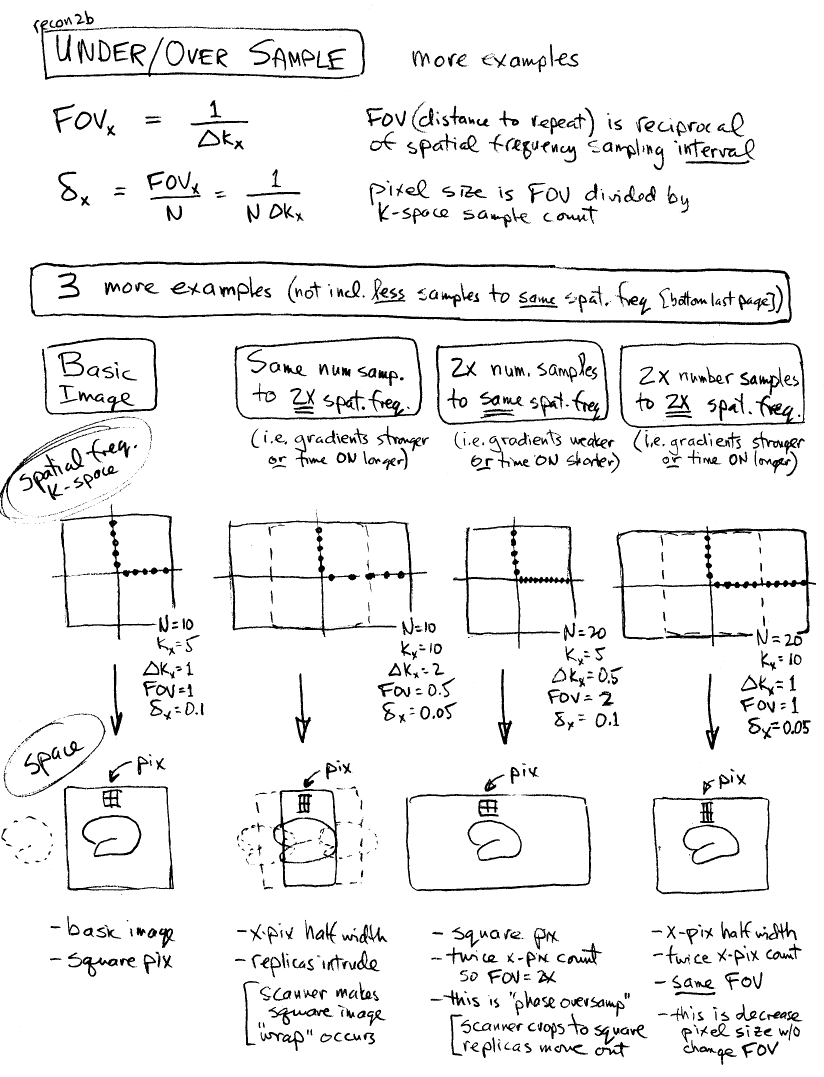 recon2b
UNDER/OVER SAMPLE more examples
FOVx = 1/ΔKx
FOV (distance to repeat) is reciprocal
of spatial frequency sampling interval
δx = FOVx/N = 1/(N ΔKx)
pixel size is FOV divided by
K-space sample count
3 more examples (not incl. less samples to same spat. freq [bottom last page])
Basic
Image
Same num samp.
to 2X spat. freq.
(i.e. gradients stronger
or time ON longer)
2X num. samples
to same spat. freq
(i.e. gradients weaker
or time ON shorter)
2X number samples
to 2X spat. freq.
(i.e. gradients stronger
or time ON longer)
spatial freq.
K-space
N=10
Kx=5
ΔKx=1
FOV=1
δx=0.1
N=10
Kx=10
ΔKx=2
FOV=0.5
δx=0.05
N=20
Kx=5
ΔKx=0.5
FOV=2
δx=0.1
N=20
Kx=10
ΔKx=1
FOV=1
δx=0.05
space
pix
pix
pix
pix
- basic image
- square pix
- x-pix half width
- replicas intrude
scanner makes
square image
"wrap" occurs
- square pix
- twice x-pix count
so FOV=2X
- this is "phase oversamp"
scanner crops to square
replicas move out
- x-pix half width
- twice x-pix count
- same FOV
- this is decrease
pixel size w/o
change FOV